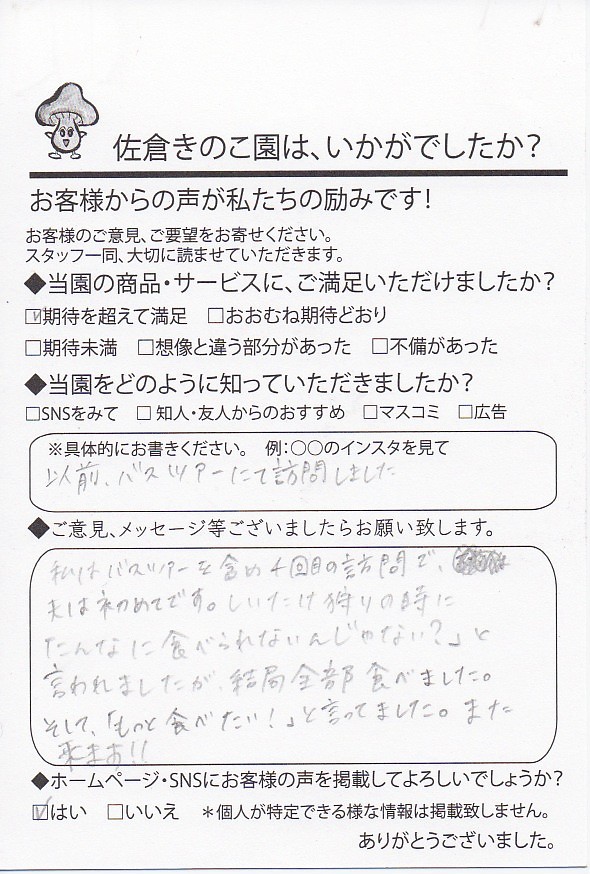 佐倉きのこ園は、いかがでしたか？
お客様からの声が私たちの励みです！
お客様のご意見、ご要望をお寄せください。
スタッフ一同、大切に読ませていただきます。
◆当園の商品・サービスに、ご満足いただけましたか？
☑期待を超えて満足　□おおむね期待どおり
□期待未満　□想像と違う部分があった　□不備があった
◆当園をどのように知っていただきましたか？
□SNSをみて　□ 知人・友人からのおすすめ　□マスコミ　□広告
※具体的にお書きください。　例：○○のインスタを見て
以前、バスツアーにて訪問しました
◆ご意見、メッセージ等ございましたらお願い致します。
私はバスツアーを含め4回目の訪問で、
夫は初めてです。しいたけ狩りの時に
「こんなに食べられないんじゃない？」と
言われましたが、結局全部食べました。
そして、「もっと食べたい！」と言ってました。また
来ます!!
◆ホームページ・SNSにお客様の声を掲載してよろしいでしょうか？
☑はい　□いいえ　＊個人が特定できる様な情報は掲載致しません。
ありがとうございました。